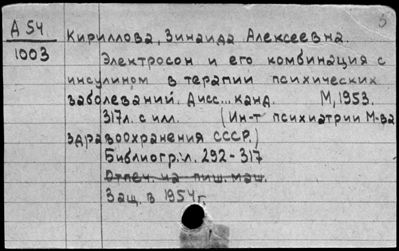 5
А 54
1003
Кириллова, Зинаида Алексеевна.
Электросон и его комбинация с
инсулином в терапии психических
заболеваний. Дисс... канд. М, 1953.
317л. с илл. (Ин-т психиатрии М-ва
здравоохранения СССР.)
Библиогр: л. 292-317
Отпеч. на пиш. маш.
Защ. в 1954г.